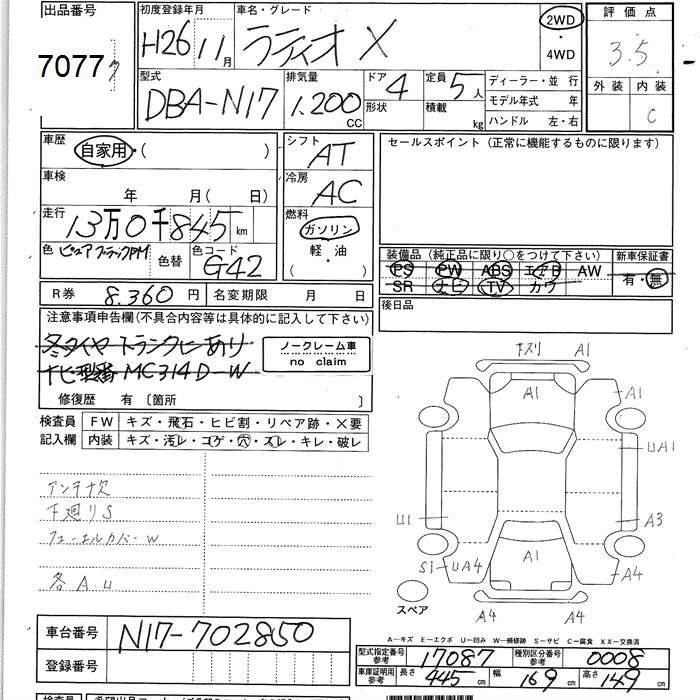 出品番号 初度登録年月 車名・グレード 2WD ・ 4WD 評価点
7077 H26 11月 ラティオ X 3.5
型式 排気量 ドア 定員 ディーラー・並 行 外装 内装
DBA-N17 1,200 CC 4 形状 5人 積載 kg モデル年式 年 C
ハンドル 左・右
車歴 自家用・( ) シフト AT セールスポイント (正常に機能するものに限ります)
車検 年 月( 日) 冷房 AC
走行 13万0千845km 燃料 ガソリン
色 ピュアブラックPM 色替 色コード G42 軽・油 ( )
装備品 (純正品に限り○をつけて下さい) 新車保証書
PS PW ABS エアB AW 有・無
SR ナビ TV カワ
R券 8,360 円 名変期限 月 日 後日品
注意事項申告欄(不具合内容等は具体的に記入して下さい)
冬タイヤ トランクにあり
ナビ型番 MC314D-W
ノークレーム車
no claim
修復歴 有〔箇所 〕
検査員 FW キズ・飛石・ヒビ割・リペア跡・×要
記入欄 内装 キズ・汚レ・コゲ・穴・スレ・キレ・破レ
アンテナ欠
下廻りS
フューエルカバーW
各AU
下スリ A1
A1 A1
UA1
U1 A3
A1
S1 UA4 A4
スペア
A4 A4
A-キズ E-エクボ U-凹み W-補修跡 S-サビ C-腐食 XX-交換済
車台番号 N17-702850
登録番号
型式指定番号 参考 17087 種別区分番号 参考 0008
車庫証明用 参考 長さ 445cm 幅 169cm 高さ 149cm